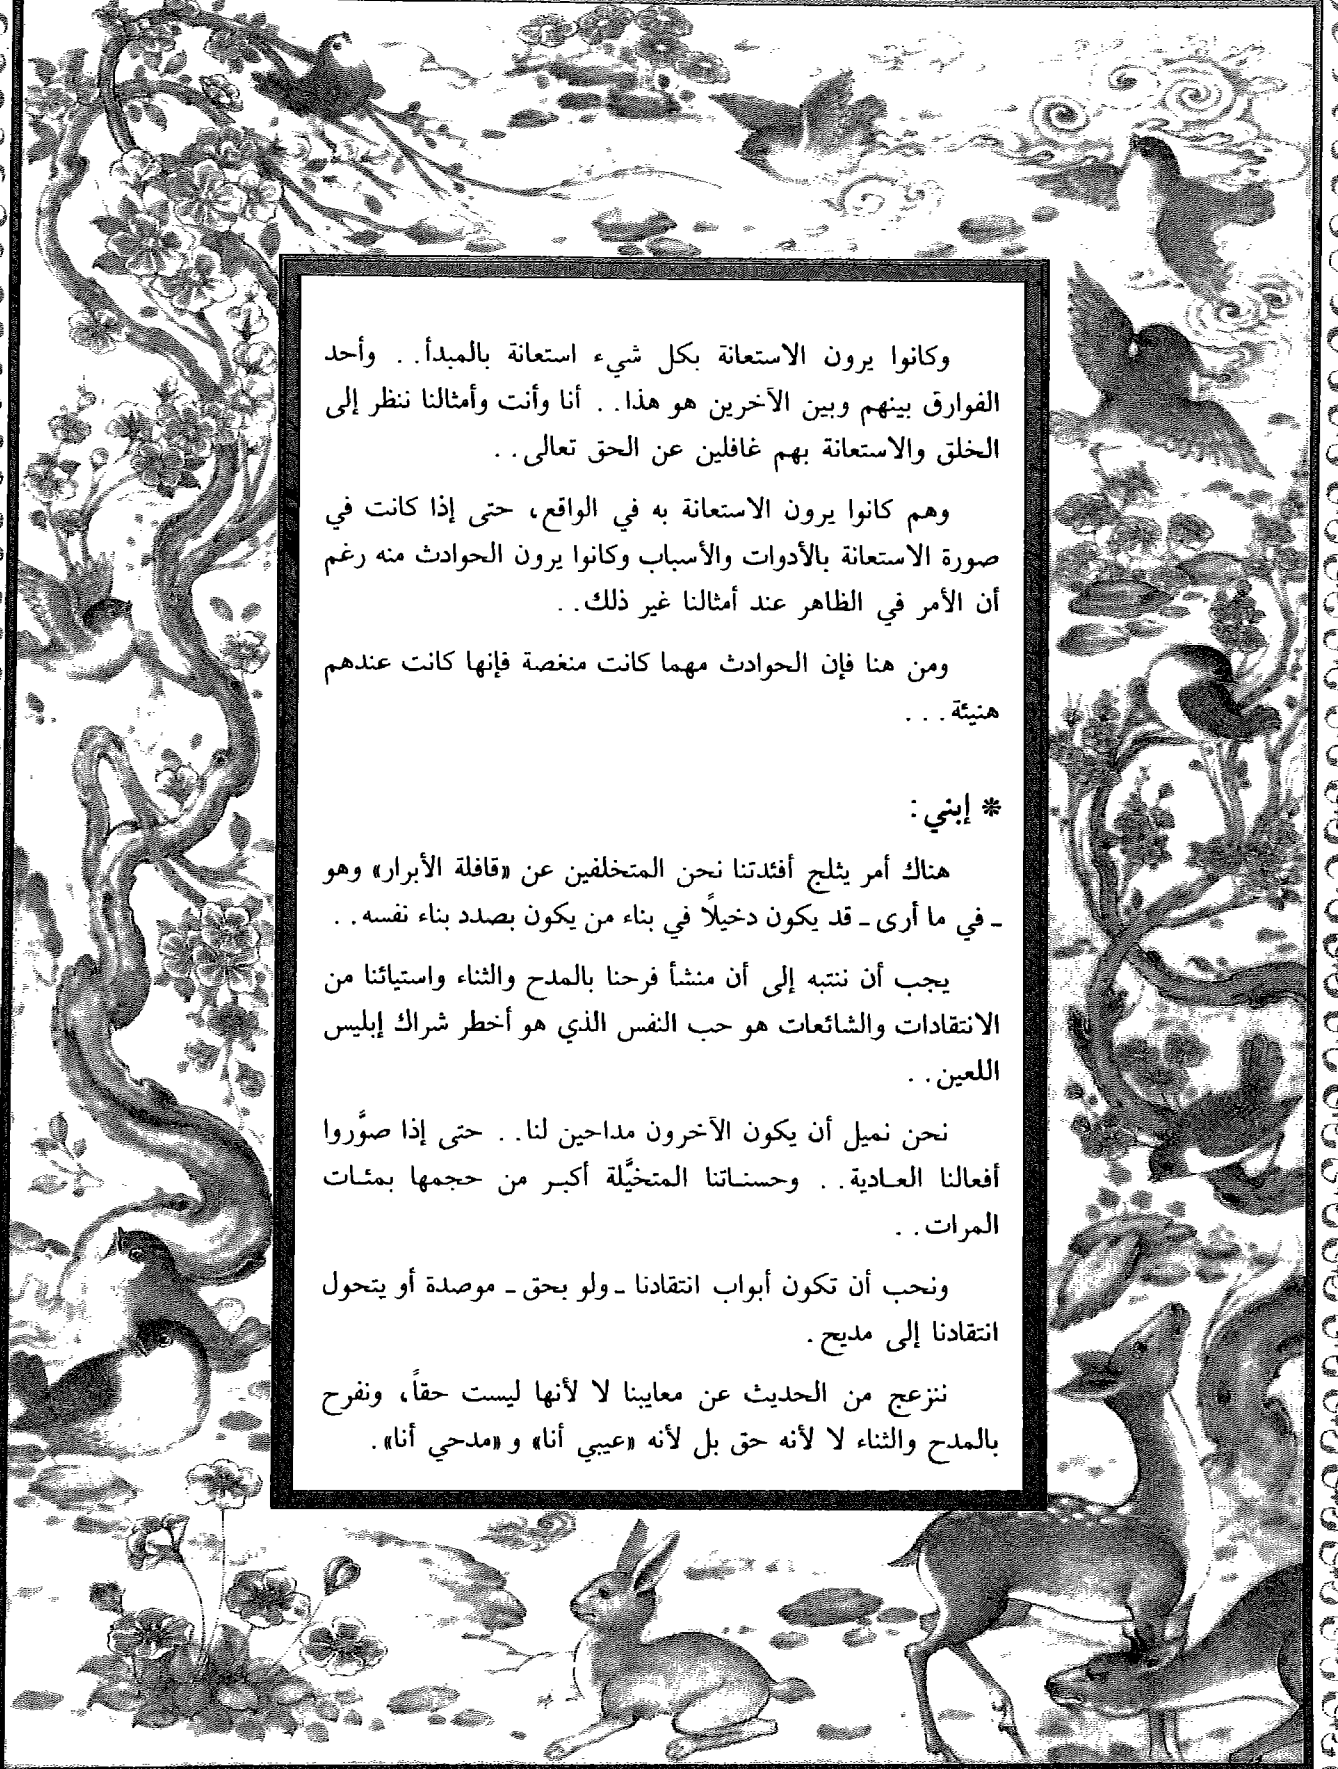 وكانوا يرون الاستعانة بكل شيء استعانة بالمبدأ. . وأحد
الفوارق بينهم وبين الآخرين هو هذا. . أنا وأنت وأمثالنا ننظر إلى
الخلق والاستعانة بهم غافلين عن الحق تعالى. .
وهم كانوا يرون الاستعانة به في الواقع، حتى إذا كانت في
صورة الاستعانة بالأدوات والأسباب وكانوا يرون الحوادث منه رغم
أن الأمر في الظاهر عند أمثالنا غير ذلك. .
ومن هنا فإن الحوادث مهما كانت منغصة فإنها كانت عندهم
هنيئة. . .
* إبني:
هناك أمر يثلج أفئدتنا نحن المتخلفين عن «قافلة الأبرار» وهو
ـ في ما أرى ـ قد يكون دخيلاً في بناء من يكون بصدد بناء نفسه. .
يجب أن ننتبه إلى أن منشأ فرحنا بالمدح والثناء واستيائنا من
الانتقادات والشائعات هو حب النفس الذي هو أخطر شراك إبليس
اللعين. .
نحن نميل أن يكون الآخرون مداحين لنا. . حتى إذا صوَّروا
أفعالنا العـادية. . وحسنـاتنا المتخيَّلة أكبـر من حجمها بمئـات
المرات. .
ونحب أن تكون أبواب انتقادنا ـ ولو بحق ـ موصدة أو يتحول
انتقادنا إلى مديح.
ننزعج من الحديث عن معايبنا لا لأنها ليست حقاً، ونفرح
بالمدح والثناء لا لأنه حق بل لأنه «عيبي أنا» و «مدحي أنا».